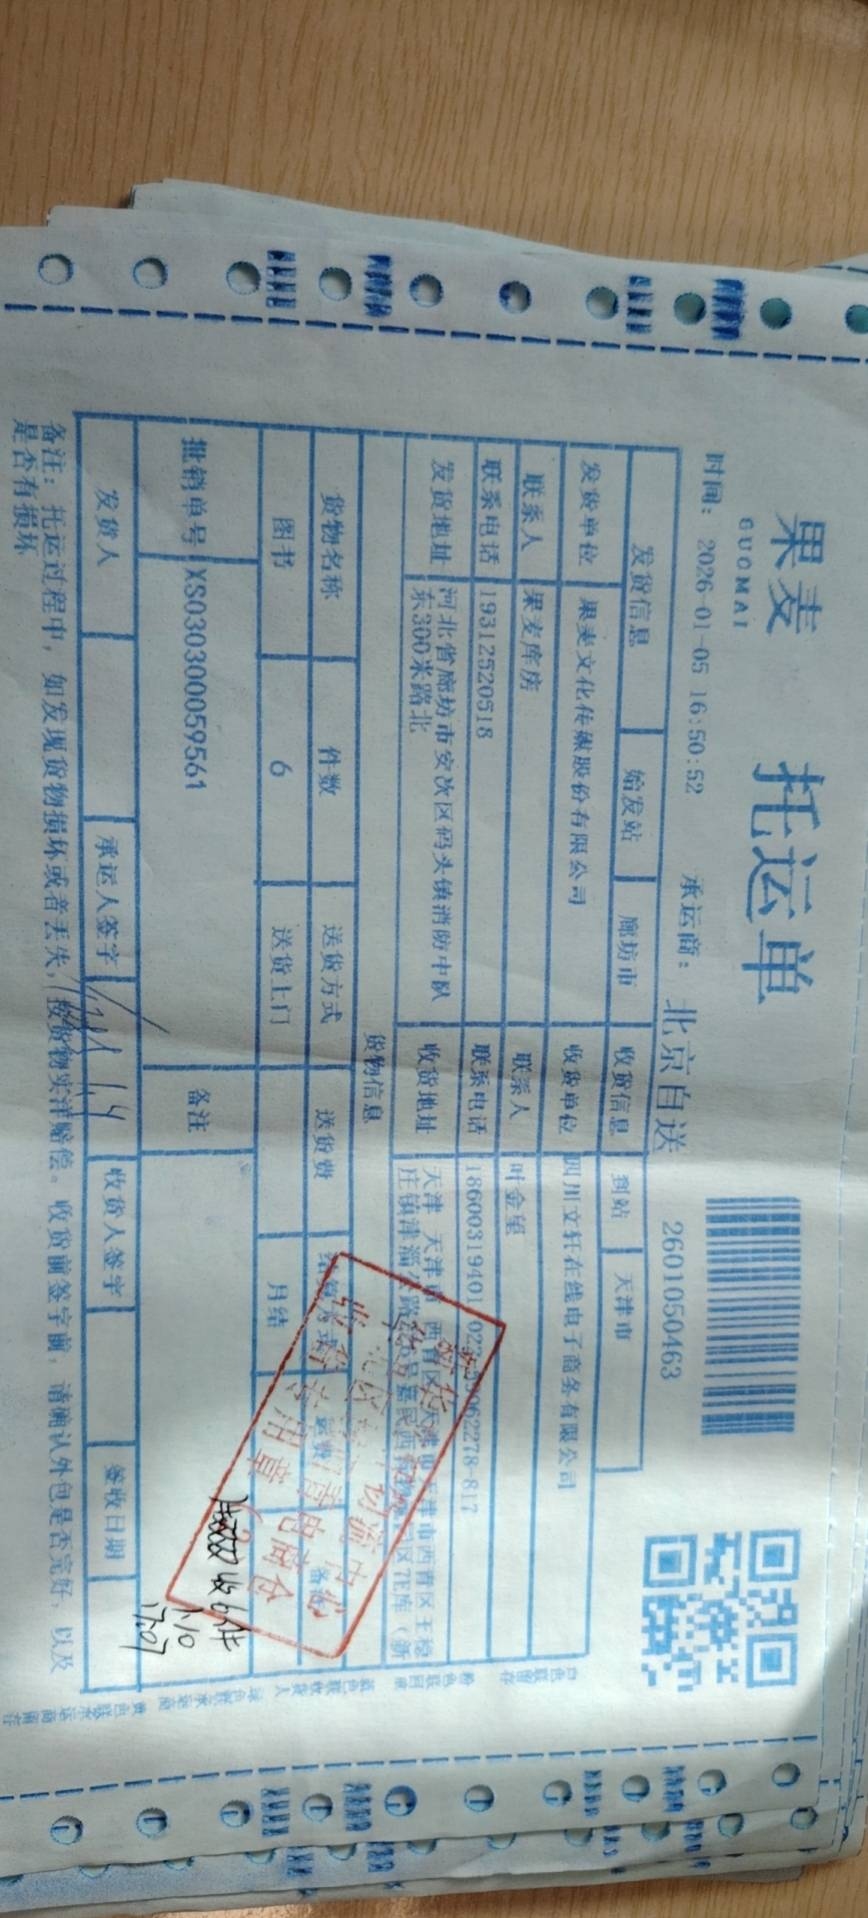 果麦
GUOMAI
托运单
时间: 2026-01-05 16:50:52 承运商: 北京自送 2601050463
发货信息 始发站 廊坊市 收货信息 到站 天津市
发货单位 果麦文化传媒股份有限公司 收货单位 四川文轩在线电子商务有限公司
联系人 果麦库房 联系人 叶金至
联系电话 19312520518 联系电话 18600319401
发货地址 河北省廊坊市安次区码头镇消防中队东300米路北 收货地址 天津 天津市 西青区
货物信息
货物名称 件数 送货方式 送货费 结算方式 运费 备注
图书 6 送货上门 月结
批销单号 XS030300059561 备注
收6件
1.10
17:07
发货人 承运人签字 收货人签字 签收日期
备注: 托运过程中, 如发现货物损坏或者丢失, 按货物实洋赔偿。收货前签字前, 请确认外包是否完好, 以及
是否有损坏